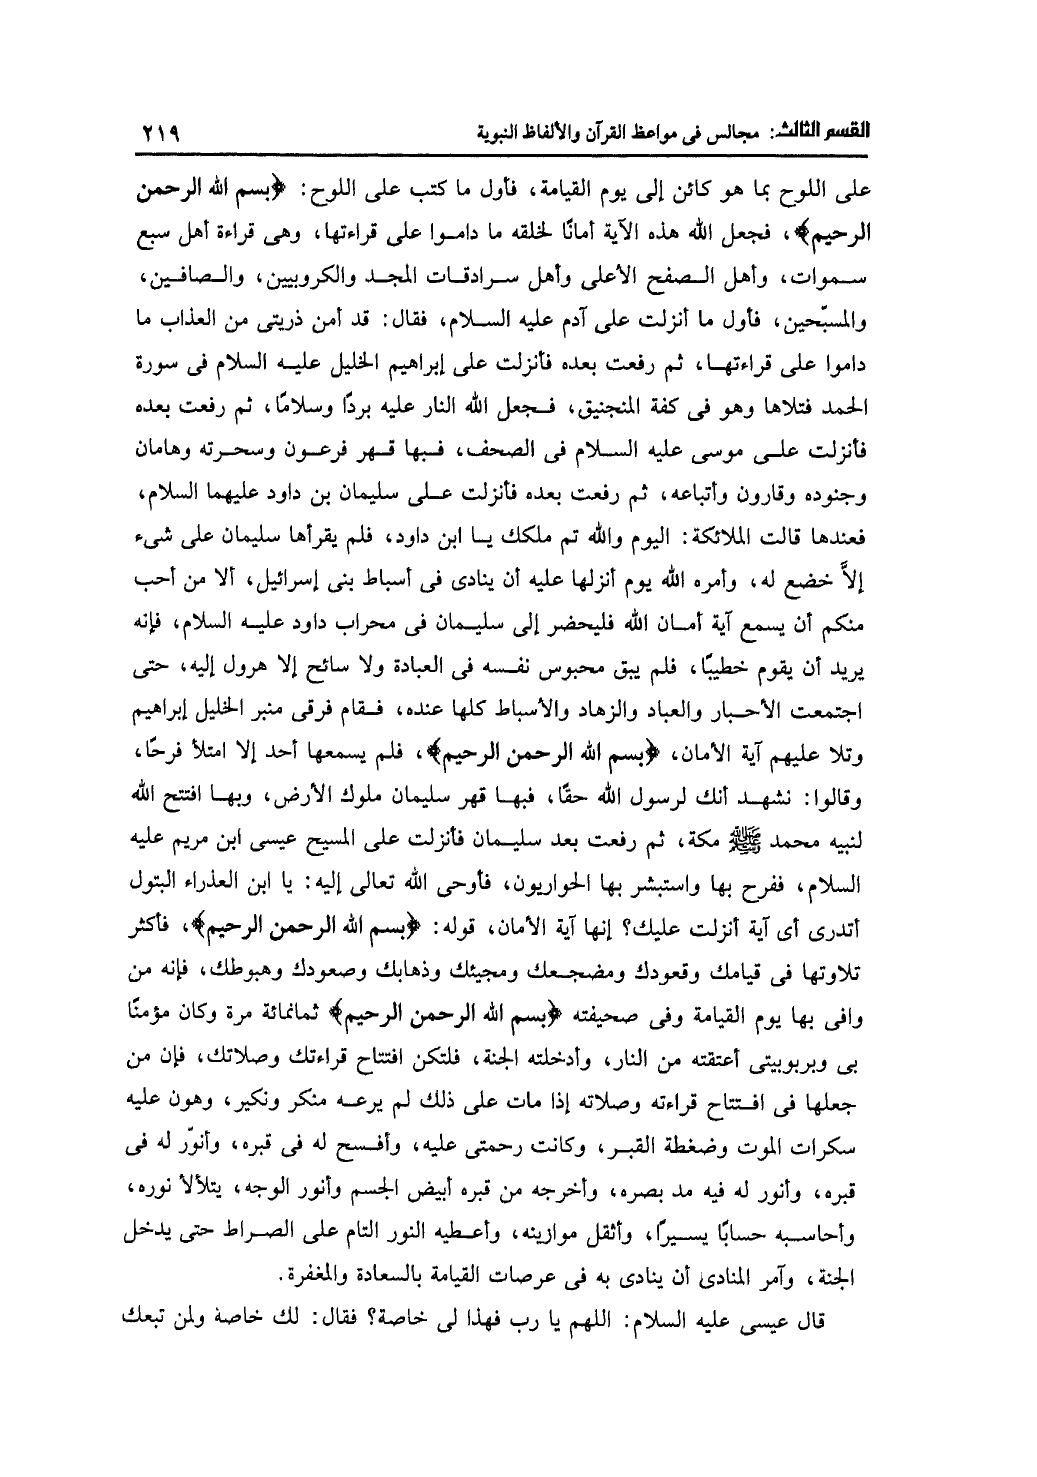 القسم الثالث: مجالس فى مواعظ القرآن والألفاظ النبوية ٢١٩
على اللوح بما هو كائن إلى يوم القيامة، فأول ما كتب على اللوح: ﴿بسم الله الرحمن
الرحيم﴾، فجعل الله هذه الآية أمانًا لخلقه ما داموا على قراءتها، وهى قراءة أهل سبع
سموات، وأهل الصفح الأعلى وأهل سرادقات المجد والكروبيين، والصافين،
والمسبّحين، فأول ما أنزلت على آدم عليه السلام، فقال: قد أمن ذريتى من العذاب ما
داموا على قراءتها، ثم رفعت بعده فأنزلت على إبراهيم الخليل عليه السلام فى سورة
الحمد فتلاها وهو فى كفة المنجنيق، فجعل الله النار عليه بردًا وسلامًا، ثم رفعت بعده
فأنزلت على موسى عليه السلام فى الصحف، فبها قهر فرعون وسحرته وهامان
وجنوده وقارون وأتباعه، ثم رفعت بعده فأنزلت على سليمان بن داود عليهما السلام،
فعندها قالت الملائكة: اليوم والله تم ملكك يا ابن داود، فلم يقرأها سليمان على شىء
إلاَّ خضع له، وأمره الله يوم أنزلها عليه أن ينادى فى أسباط بنى إسرائيل، ألا من أحب
منكم أن يسمع آية أمان الله فليحضر إلى سليمان فى محراب داود عليه السلام، فإنه
يريد أن يقوم خطيبًا، فلم يبق محبوس نفسه فى العبادة ولا سائح إلا هرول إليه، حتى
اجتمعت الأحبار والعباد والزهاد والأسباط كلها عنده، فقام فرقى منبر الخليل إبراهيم
وتلا عليهم آية الأمان، ﴿بسم الله الرحمن الرحيم﴾، فلم يسمعها أحد إلا امتلأ فرحًا،
وقالوا: نشهد أنك لرسول الله حقًا، فبها قهر سليمان ملوك الأرض، وبها افتتح الله
لنبيه محمد ﷺ مكة، ثم رفعت بعد سليمان فأنزلت على المسيح عيسى ابن مريم عليه
السلام، ففرح بها واستبشر بها الحواريون، فأوحى الله تعالى إليه: يا ابن العذراء البتول
أتدرى أى آية أنزلت عليك؟ إنها آية الأمان، قوله: ﴿بسم الله الرحمن الرحيم﴾، فأكثر
تلاوتها فى قيامك وقعودك ومضجعك ومجيئك وذهابك وصعودك وهبوطك، فإنه من
وافى بها يوم القيامة وفى صحيفته ﴿بسم الله الرحمن الرحيم﴾ ثمانمائة مرة وكان مؤمنًا
بى وبربوبيتى أعتقته من النار، وأدخلته الجنة، فلتكن افتتاح قراءتك وصلاتك، فإن من
جعلها فى افتتاح قراءته وصلاته إذا مات على ذلك لم يرعه منكر ونكير، وهون عليه
سكرات الموت وضغطة القبر، وكانت رحمتى عليه، وأفسح له فى قبره، وأنوّر له فى
قبره، وأنور له فيه مد بصره، وأخرجه من قبره أبيض الجسم وأنور الوجه، يتلألأ نوره،
وأحاسبه حسابًا يسيرًا، وأثقل موازينه، وأعطيه النور التام على الصراط حتى يدخل
الجنة، وآمر المنادى أن ينادى به فى عرصات القيامة بالسعادة والمغفرة.
قال عيسى عليه السلام: اللهم يا رب فهذا لى خاصة؟ فقال: لك خاصة ولمن تبعك